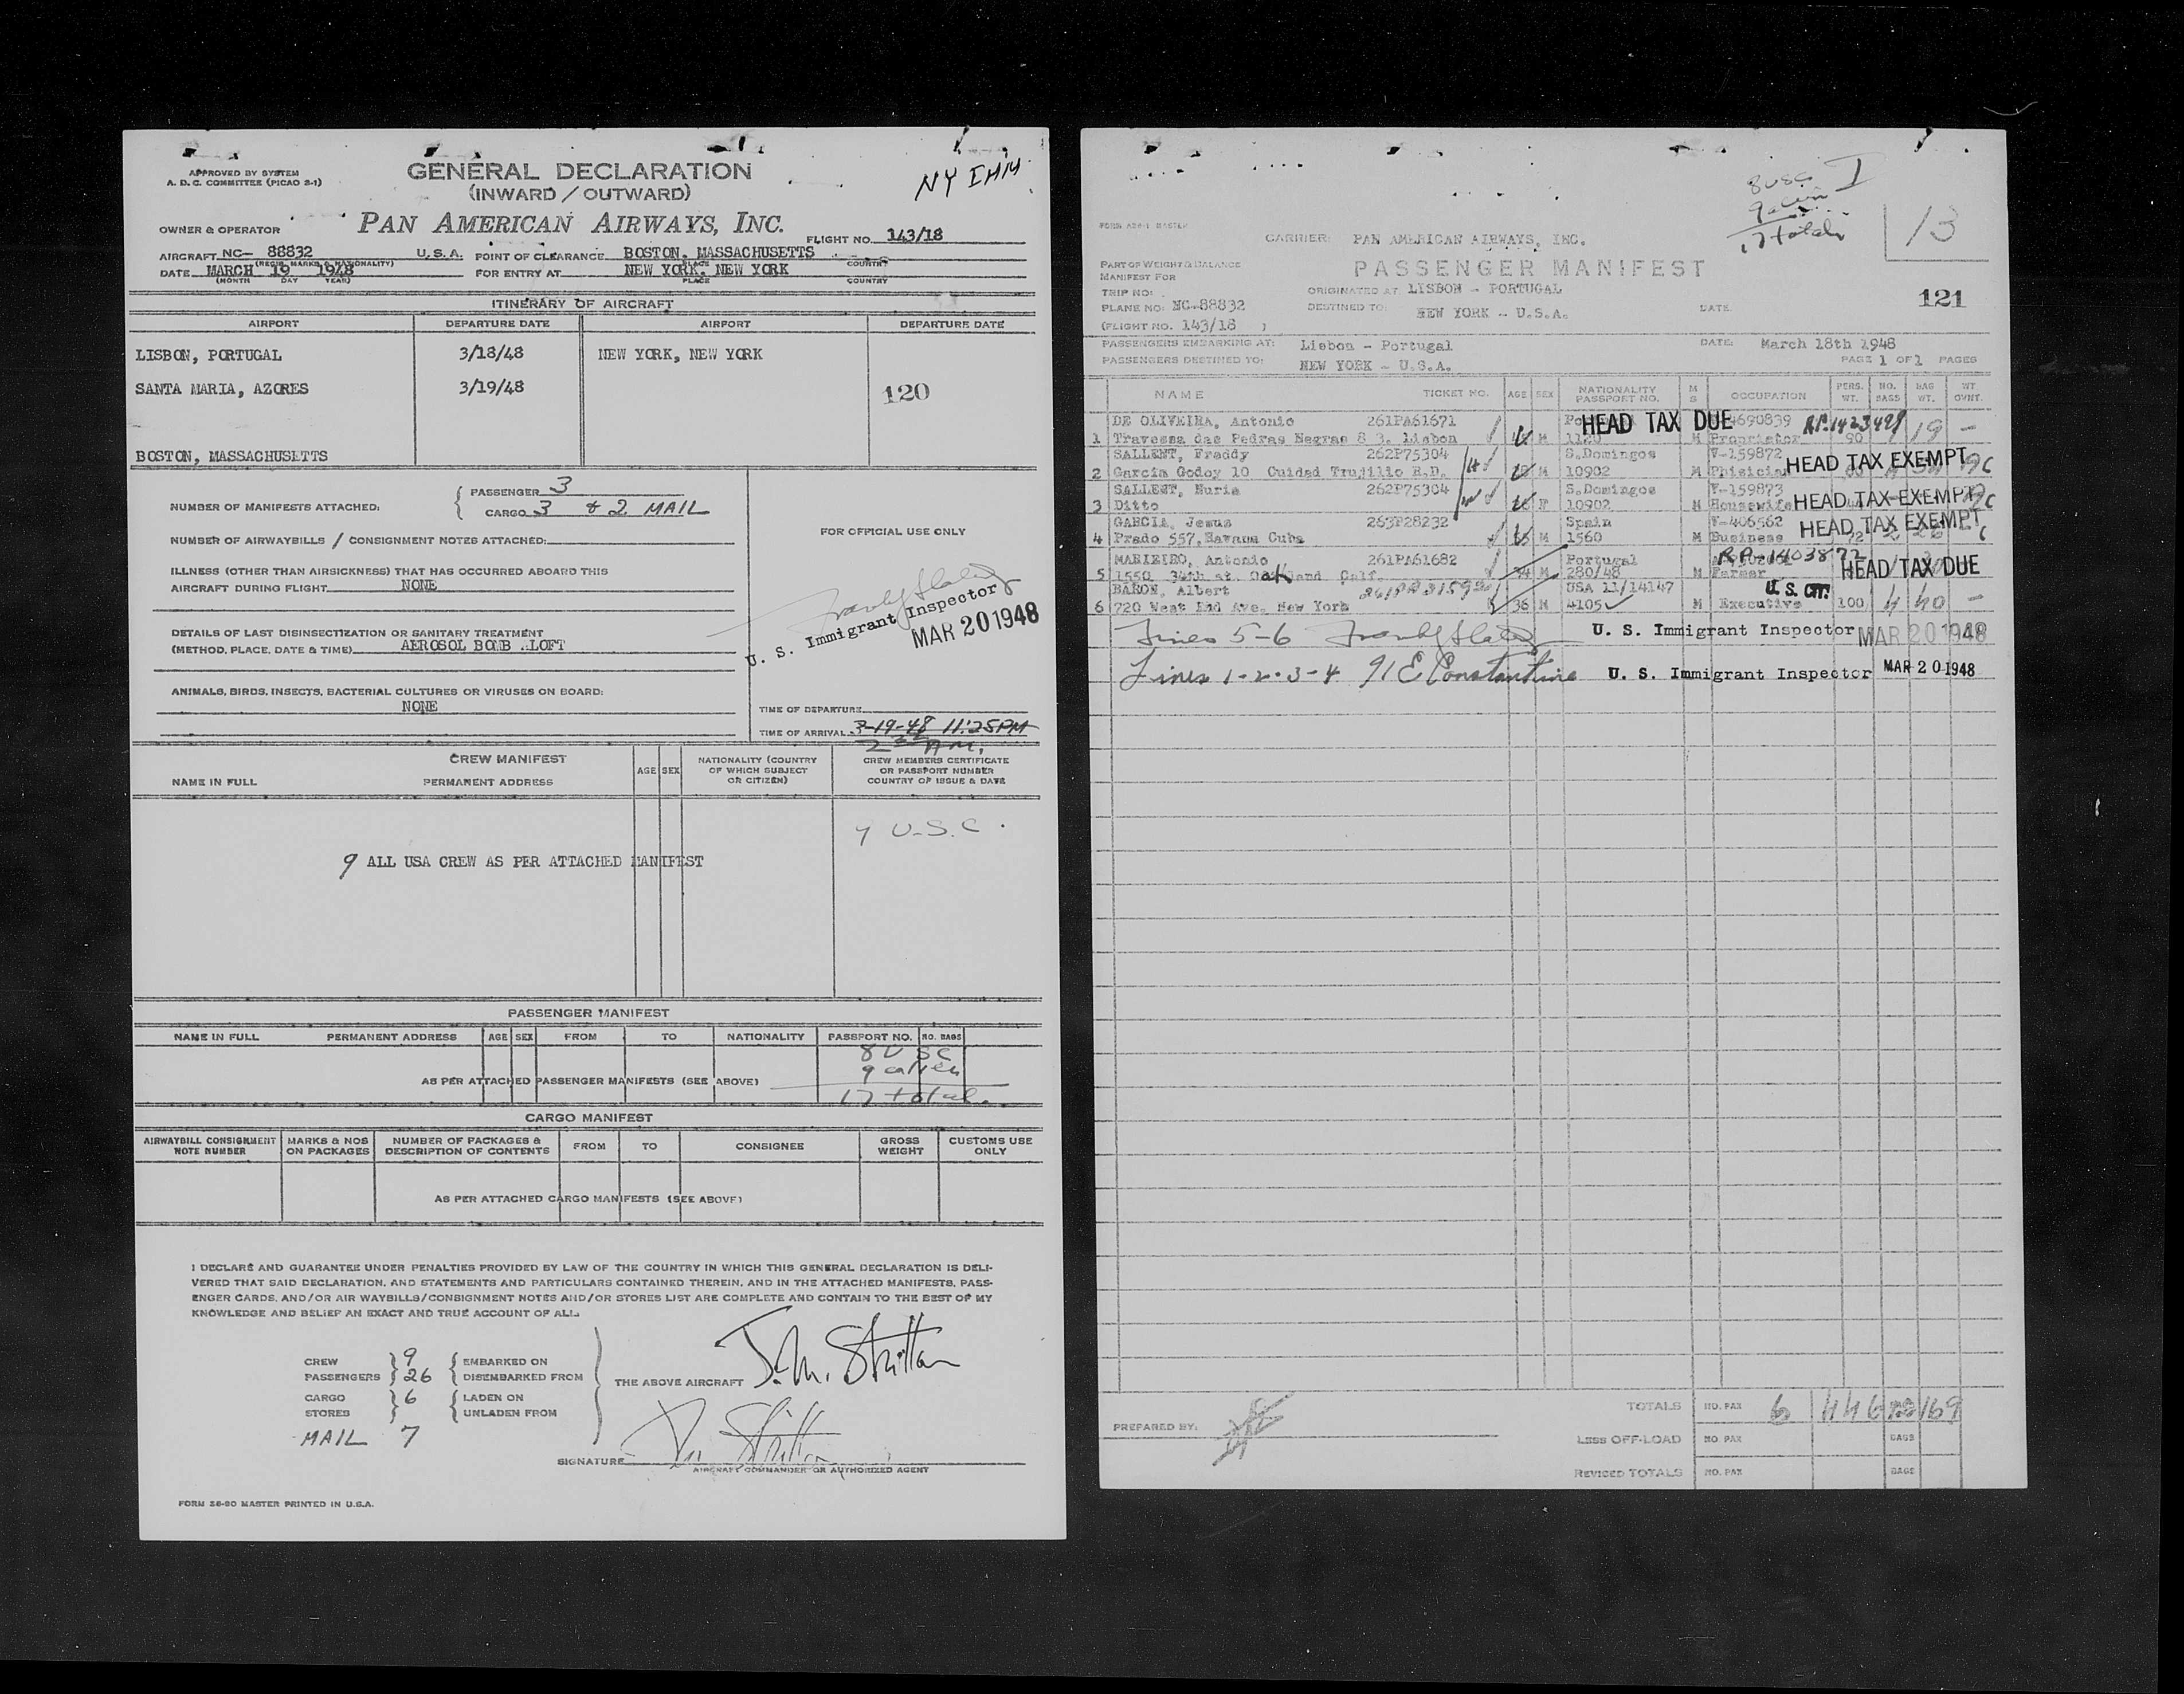 APPROVED BY SYSTEM
A. D. C. COMMITTEE (PICAO 2-1)
GENERAL DECLARATION
(INWARD / OUTWARD)
NY
OWNER & OPERATOR
PAN AMERICAN AIRWAYS, INC.
FLIGHT NO. 143/18
AIRCRAFT NC- 88832 U.S.A. POINT OF CLEARANCE BOSTON, MASSACHUSETTS
(REGIS. MARKS & NATIONALITY) PLACE COUNTRY
DATE MARCH 19 1948 FOR ENTRY AT NEW YORK, NEW YORK
(MONTH DAY YEAR) PLACE COUNTRY
ITINERARY OF AIRCRAFT
AIRPORT DEPARTURE DATE AIRPORT DEPARTURE DATE
LISBON, PORTUGAL 3/18/48 NEW YORK, NEW YORK
SANTA MARIA, AZORES 3/19/48 120
BOSTON, MASSACHUSETTS
NUMBER OF MANIFESTS ATTACHED: PASSENGER 3
CARGO 3 & 2 MAIL
NUMBER OF AIRWAYBILLS / CONSIGNMENT NOTES ATTACHED:
ILLNESS (OTHER THAN AIRSICKNESS) THAT HAS OCCURRED ABOARD THIS
AIRCRAFT DURING FLIGHT NONE
DETAILS OF LAST DISINSECTIZATION OR SANITARY TREATMENT
(METHOD, PLACE, DATE & TIME) AEROSOL BOMB ALOFT
ANIMALS, BIRDS, INSECTS, BACTERIAL CULTURES OR VIRUSES ON BOARD:
NONE
FOR OFFICIAL USE ONLY
U. S. Immigrant Inspector
MAR 20 1948
TIME OF DEPARTURE
TIME OF ARRIVAL 3-19-48 11:25PM
A.M.
CREW MANIFEST
NAME IN FULL PERMANENT ADDRESS AGE SEX NATIONALITY (COUNTRY OF WHICH SUBJECT OR CITIZEN) CREW MEMBERS CERTIFICATE OR PASSPORT NUMBER COUNTRY OF ISSUE & DATE
9 U.S.C.
9 ALL USA CREW AS PER ATTACHED MANIFEST
PASSENGER MANIFEST
NAME IN FULL PERMANENT ADDRESS AGE SEX FROM TO NATIONALITY PASSPORT NO. NO. BAGS
8 USC
9 alien
AS PER ATTACHED PASSENGER MANIFESTS (SEE ABOVE)
17 total
CARGO MANIFEST
AIRWAYBILL CONSIGNMENT NOTE NUMBER MARKS & NOS ON PACKAGES NUMBER OF PACKAGES & DESCRIPTION OF CONTENTS FROM TO CONSIGNEE GROSS WEIGHT CUSTOMS USE ONLY
AS PER ATTACHED CARGO MANIFESTS (SEE ABOVE)
I DECLARE AND GUARANTEE UNDER PENALTIES PROVIDED BY LAW OF THE COUNTRY IN WHICH THIS GENERAL DECLARATION IS DELI-
VERED THAT SAID DECLARATION, AND STATEMENTS AND PARTICULARS CONTAINED THEREIN, AND IN THE ATTACHED MANIFESTS, PASS-
ENGER CARDS, AND/OR AIR WAYBILLS/CONSIGNMENT NOTES AND/OR STORES LIST ARE COMPLETE AND CONTAIN TO THE BEST OF MY
KNOWLEDGE AND BELIEF AN EXACT AND TRUE ACCOUNT OF ALL
CREW 9 EMBARKED ON
PASSENGERS 26 DISEMBARKED FROM
THE ABOVE AIRCRAFT J.M. Stritton
CARGO 6 LADEN ON
STORES UNLADEN FROM
MAIL 7
SIGNATURE
AIRCRAFT COMMANDER OR AUTHORIZED AGENT
FORM 36-90 MASTER PRINTED IN U.S.A.
8 USC I
9 alien
17 total
13
CARRIER: PAN AMERICAN AIRWAYS, INC.
PART OF WEIGHT & BALANCE
MANIFEST FOR
PASSENGER MANIFEST
TRIP NO: ORIGINATED AT LISBON - PORTUGAL 121
PLANE NO: NC-88832 DESTINED TO: NEW YORK - U.S.A. DATE
(FLIGHT NO. 143/18 )
PASSENGERS EMBARKING AT: Lisbon - Portugal DATE: March 18th 1948
PASSENGERS DESTINED TO: NEW YORK - U.S.A. PAGE 1 OF 1 PAGES
NAME TICKET NO. AGE SEX NATIONALITY PASSPORT NO. M S OCCUPATION PERS. WT. NO. BAGS BAG WT. WT OVHT.
DE OLIVEIRA, Antonio 261PA61671 HEAD TAX DUE 4690839 R.P.1423491
1 Travessa das Pedras Negras 8 3. Lisbon M 1120 M Proprietor 90 19 -
SALLENT, Freddy 262P75304 S.Domingos V-159872
2 Garcia Godoy 10 Cuidad Trujillo R.D. M 10902 M HEAD TAX EXEMPT
SALLENT, Nuria 262P75304 S.Domingos V-159873
3 Ditto F 10902 M Housewife HEAD TAX EXEMPT
GARCIA, Jesus 263P28232 Spain V-406562
4 Prado 557, Havana Cuba M 1560 M Business HEAD TAX EXEMPT
MARIEIRO, Antonio 261PA61682 Portugal R.P.-1403872
5 1550 34th st. Oakland Calf. M 280/48 M Farmer HEAD TAX DUE
BARON, Albert USA 11/14147 U.S. CIT.
6 720 West End Ave. New York 36 M 4105 M Executive 100 4 40 -
Lines 5-6 U. S. Immigrant Inspector MAR 20 1948
Lines 1-2-3-4 E Constantine U. S. Immigrant Inspector MAR 20 1948
PREPARED BY:
TOTALS NO. PAX 6 446 169
LESS OFF-LOAD NO. PAX BAGS
REVISED TOTALS NO. PAX BAGS